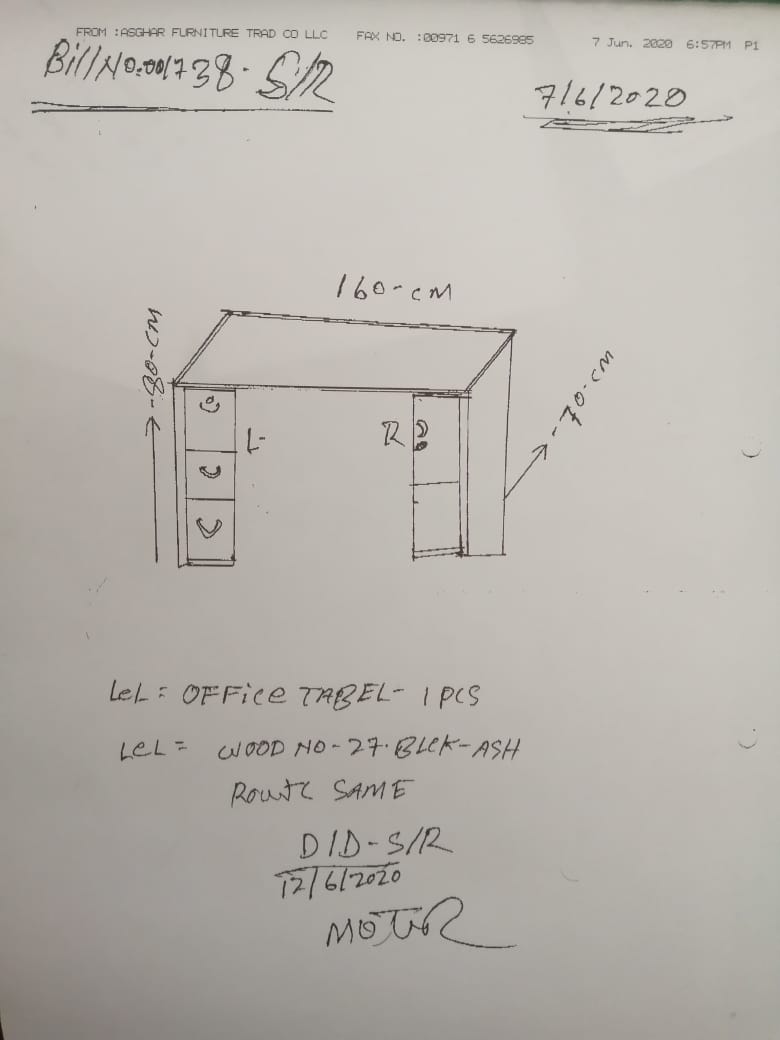 FROM :ASGHAR FURNITURE TRAD CO LLC FAX NO. :00971 6 5626985 7 Jun. 2020 6:57PM P1
Bill No.001738. S/R
7/6/2020
160-CM
80-CM
L
R
70-CM
LeL = OFFice TABEL- 1 PCS
LeL = WOOD NO-27.BLCK-ASH
SAME
D/D-S/R
12/6/2020